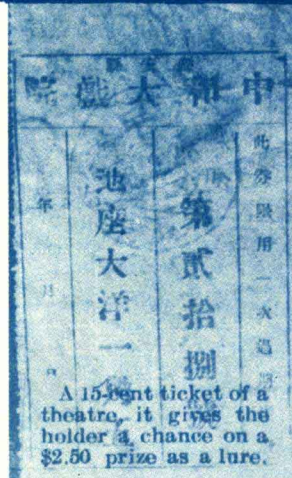 中和大戲院
此券限用一次過期
第貳拾捌
池座大洋一
年 月
A 15-cent ticket of a
theatre, it gives the
holder a chance on a
$2.50 prize as a lure.